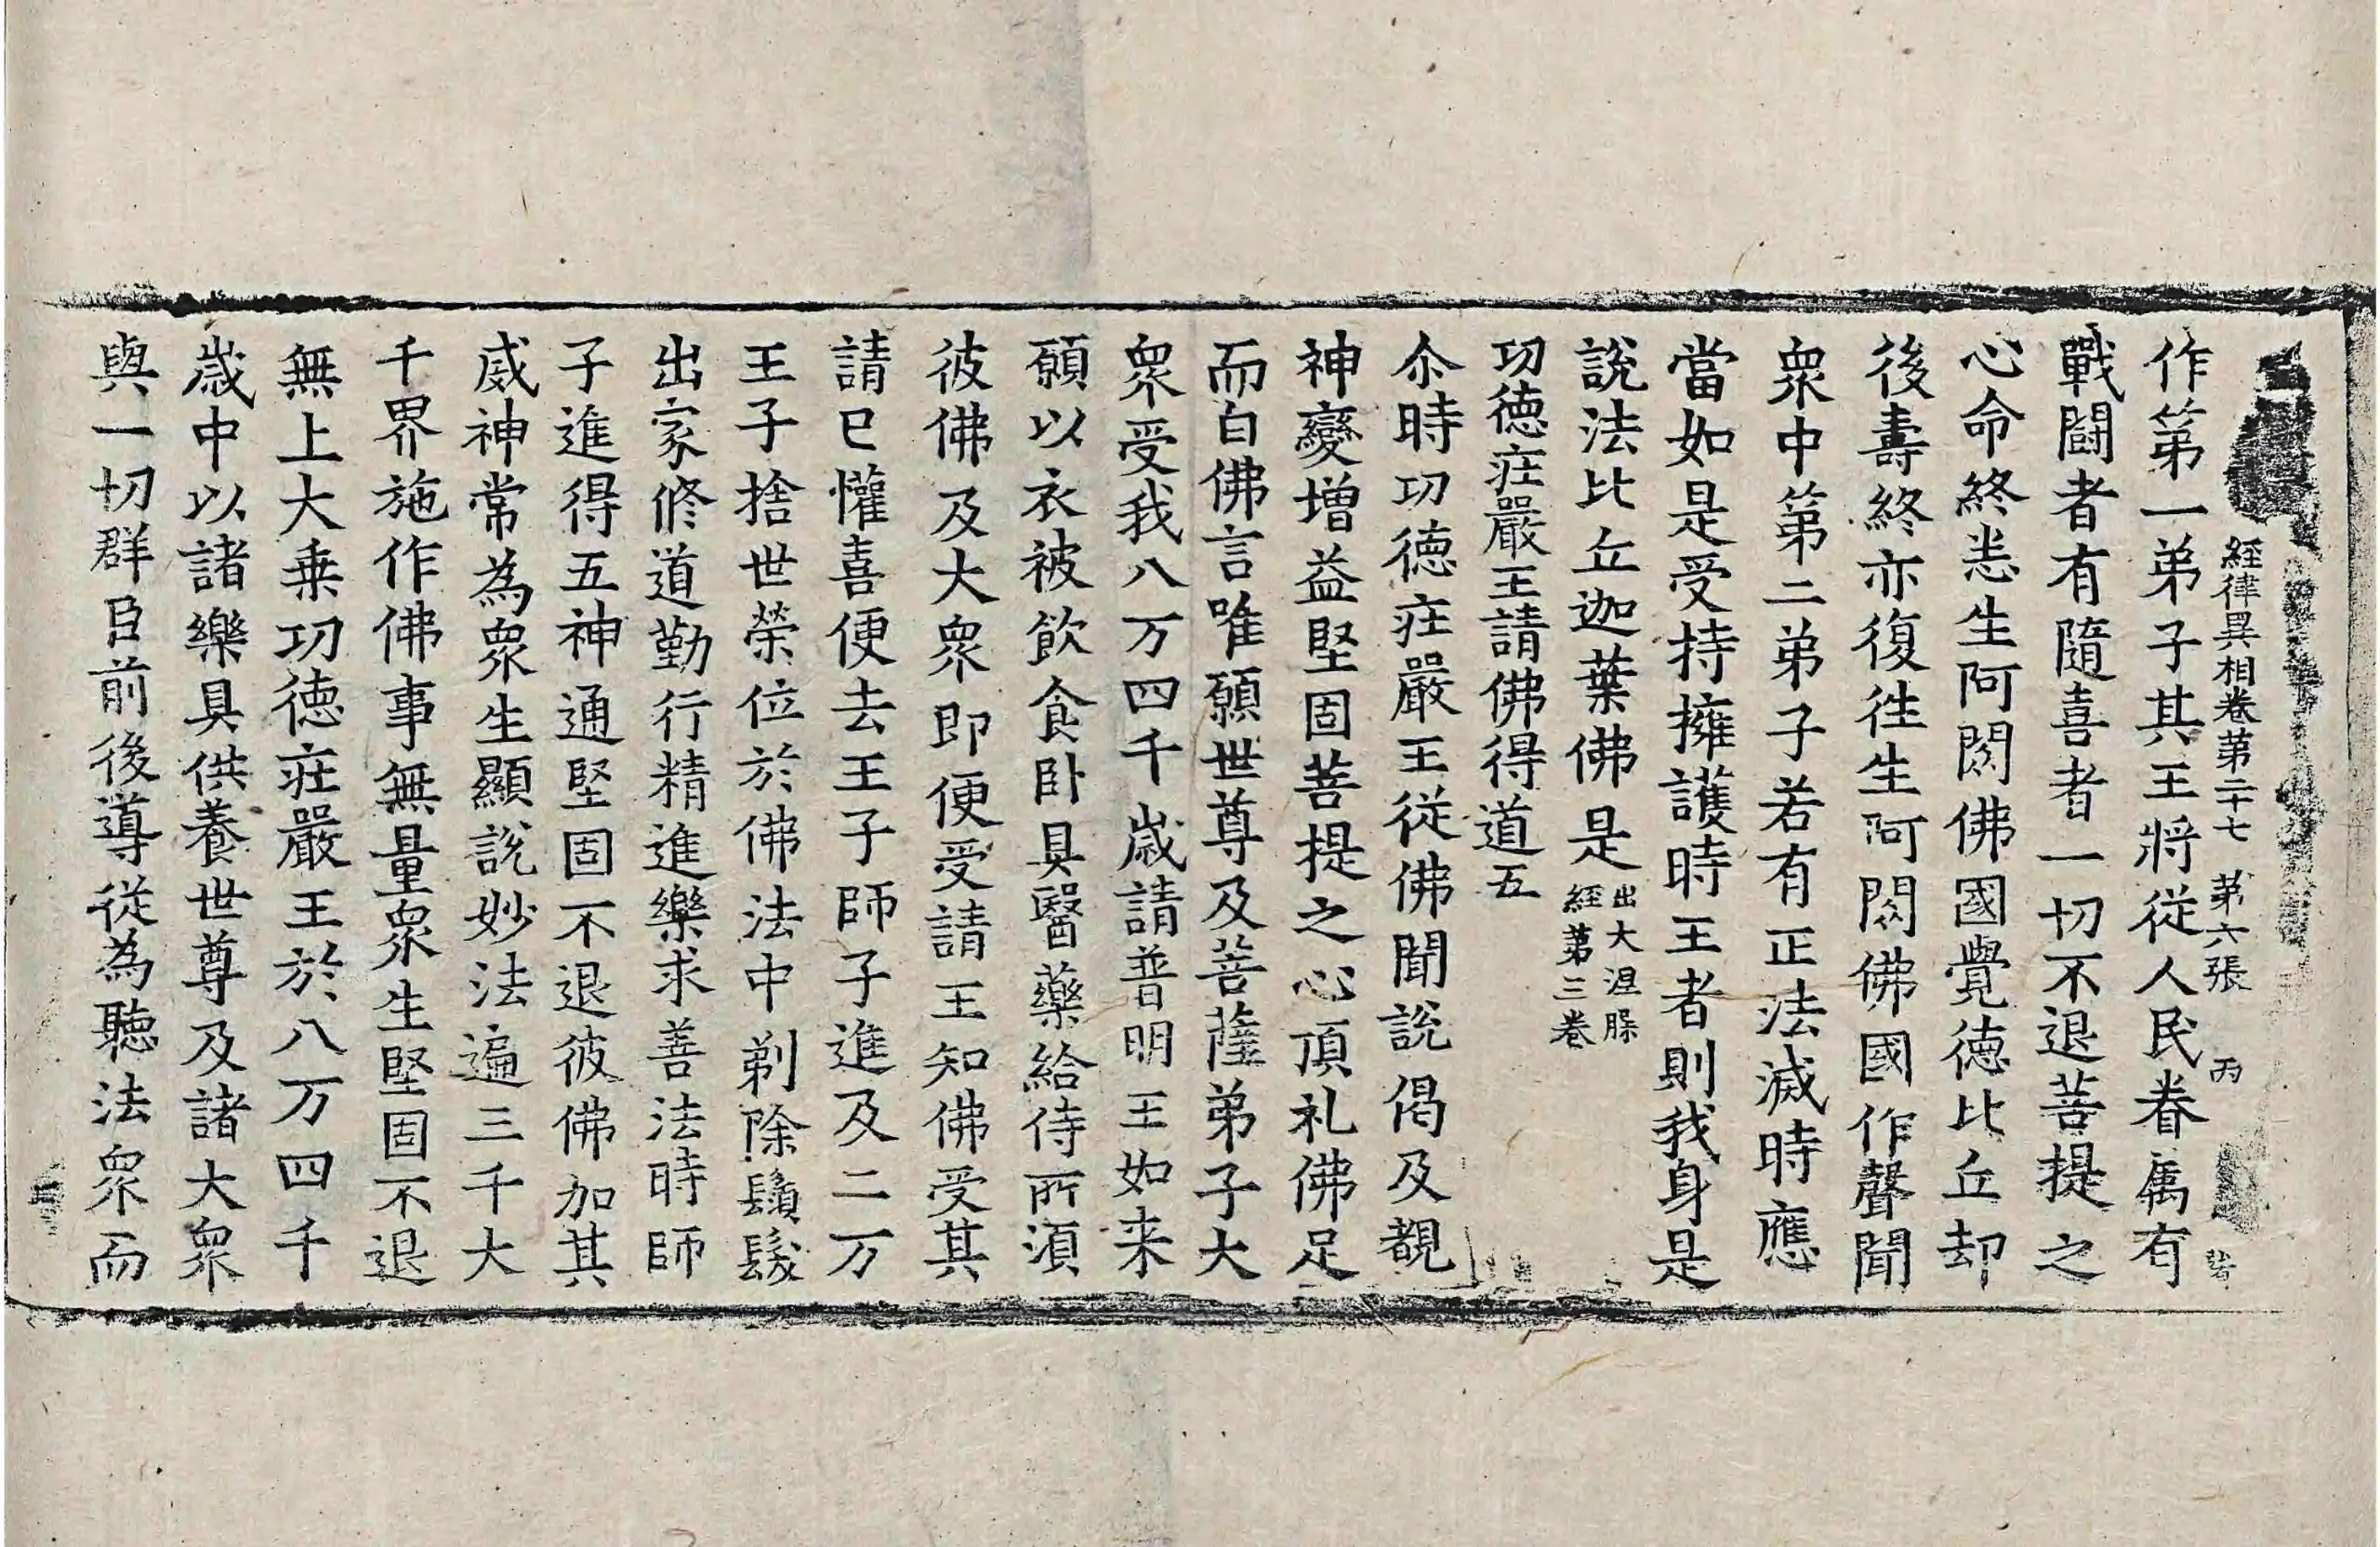 經律異相卷第二十七 第六張 丙
作第一弟子其王將從人民眷属有
戰鬪者有隨喜者一切不退菩提之
心命終悉生阿閦佛國覺德比丘却
後壽終亦復往生阿閦佛國作聲聞
衆中第二弟子若有正法滅時應
當如是受持擁護時王者則我身是
說法比丘迦葉佛是出大涅脲
經第三卷
功德莊嚴王請佛得道五
尒時功德莊嚴王從佛聞說偈及覩
神變增益堅固菩提之心頂礼佛足
而白佛言唯願世尊及菩薩弟子大
衆受我八万四千歲請普明王如来
願以衣被飲食卧具醫藥給侍所湏
彼佛及大衆即便受請王知佛受其
請已懽喜便去王子師子進及二万
王子捨世榮位於佛法中剃除鬚髮
出家修道勤行精進樂求善法時師
子進得五神通堅固不退彼佛加其
威神常為衆生顯說妙法遍三千大
千界施作佛事無量衆生堅固不退
無上大乗功德莊嚴王於八万四千
歲中以諸樂具供養世尊及諸大衆
與一切群臣前後導從為聽法衆而